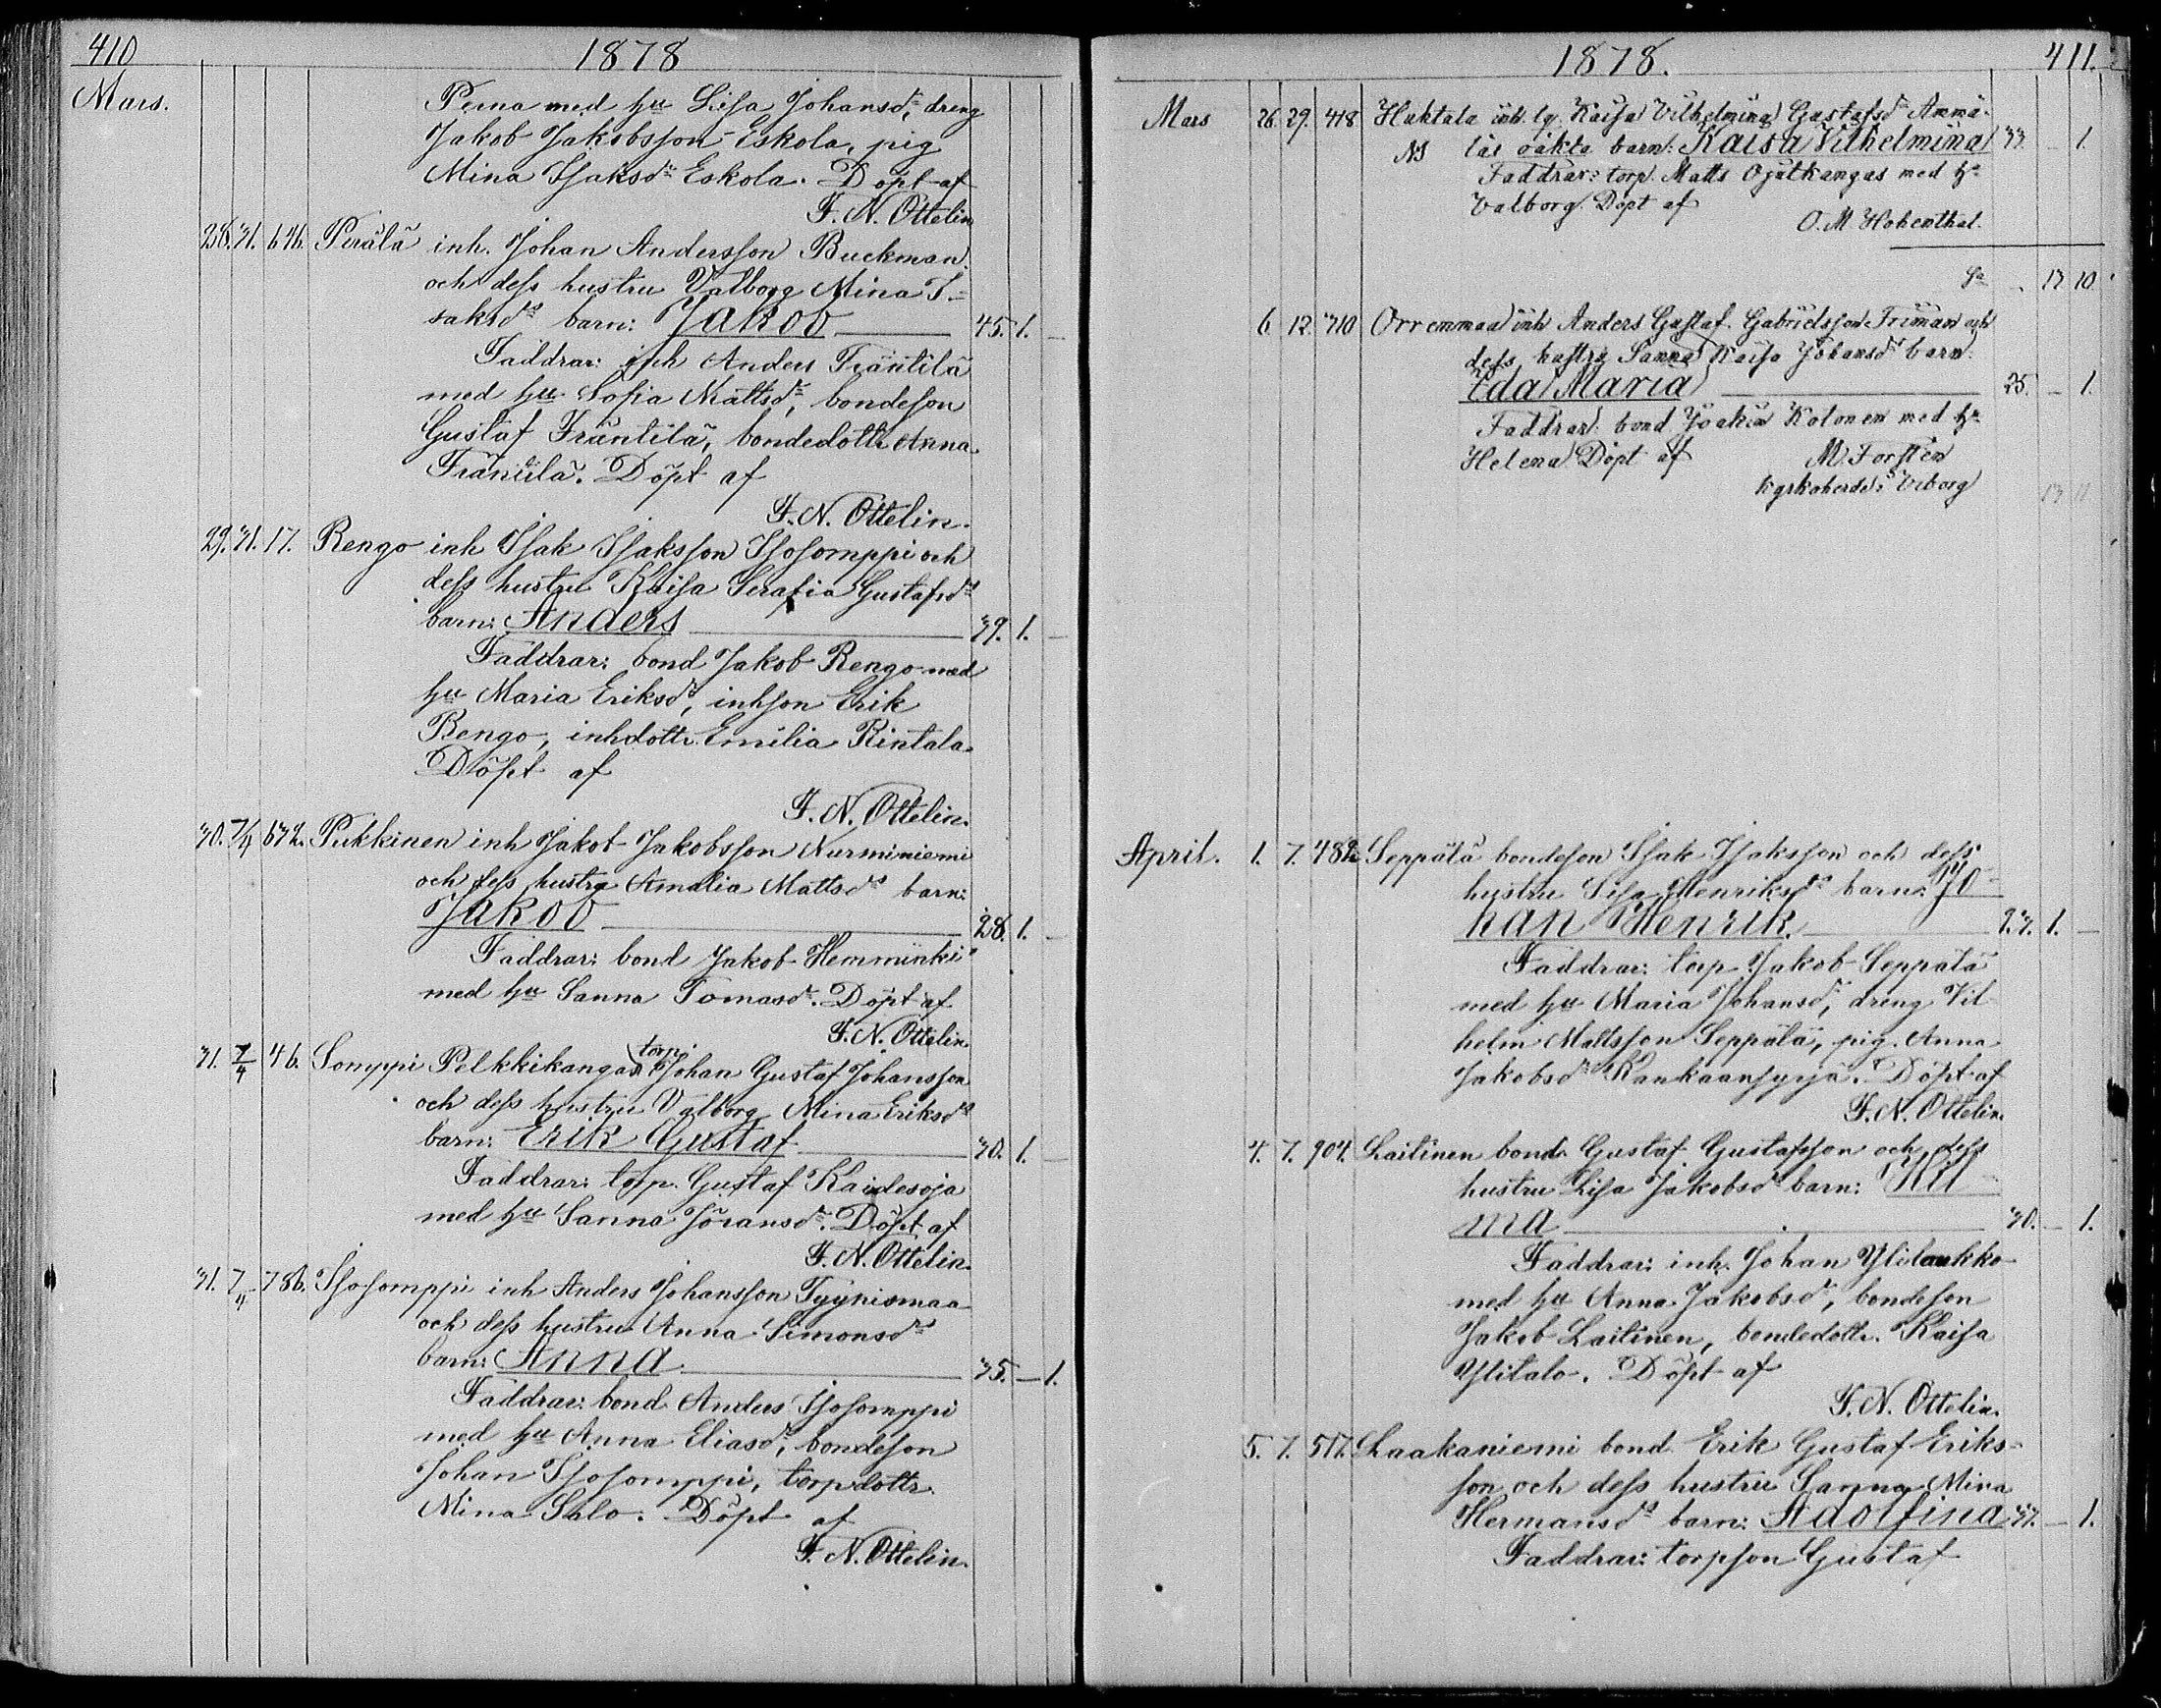 410
1878
Mars.
Perna med hu Lisa Johansdr, dreng
Jakob Jakobsson Eskola, pig
Mina Isaksdr Eskola. Döpt af
F. N. Ottelin
28. 31. 646. Perälä inh. Johan Andersson Buckman
och dess hustru Valborg Mina I-
saksdrs barn: Jakob 45. 1. —
Faddrar: inh Anders Träntilä
med hu Sofia Mattsdr, bondeson
Gustaf Fräntilä, bondedottr Anna
Fräntilä. Döpt af
F. N. Ottelin.
29. 31. 17. Rengo inh Isak Isaksson Isosomppi och
dess hustru Kaisa Serafia Gustafsdrs
barn: Anders 39. 1. —
Faddrar: bond Jakob Rengo med
hu Maria Eriksdr, inhson Erik
Rengo, inhdottr. Emilia Rintala.
Döpt af
F. N. Ottelin.
30. 7/4 632. Pukkinen inh Jakob Jakobsson Nurminiemi
och dess hustru Amalia Mattsdrs barn:
Jakob 28. 1. —
Faddrar: bond Jakob Hemminki
med hu Sanna Tomasdr. Döpt af
F. N. Ottelin.
31. 7/4 46. Somppi Pelkkikangas torp. Johan Gustaf Johansson
och dess hustru Valborg Mina Eriksdrs
barn: Erik Gustaf 30. 1. —
Faddrar: torp. Gustaf Kaidesoja
med hu Sanna Göransdr. Döpt af
F. N. Ottelin.
31. 7/4 786. Isosomppi inh Anders Johansson Tyynismaa
och dess hustru Anna Simonsdrs
barn: Anna 35. — 1.
Faddrar: bond Anders Isosomppi
med hu Anna Eliasdr, bondeson
Johan Isosomppi, torpdottr.
Mina Salo. Döpt af
F. N. Ottelin.
1878.
411.
Mars 26. 29. 418 Huhtala inh. lq. Kaisa Vilhelmina Gustafsdr Ammä-
NB läs oäkta barn: Kaisa Vilhelmina 33 — 1.
Faddrar: torp. Matts Ojutkangas med hu
Valborg. Döpt af
O. M. Hohenthal.
Sa 13 10
6 12 310 Orrenmaa inh Anders Gustaf Gabrielsson Friman och
dess hustru Sanna Kaisa Johansdrs barn:
Eda Maria 25. — 1.
Faddrar: bond Joakim Kolonen med hu
Helena Döpt af M. Forstén
Kyrkoherde i Viborg
13 11
April. 1. 7. 482 Seppälä bondeson Isak Isaksson och dess
hustru Lisa Henriksdrs barn: Jo-
han Henrik. 27. 1. —
Faddrar: torp Jakob Seppälä
med hu Maria Johansdr, dreng Vil
helm Mattsson Seppälä, pig. Anna
Jakobsdr Kankaansyrjä. Döpt af
F. N. Ottelin.
4. 7. 904. Laitinen bond. Gustaf Gustafsson och dess
hustru Lisa Jakobsdrs barn: Hil-
ma 30. — 1.
Faddrar: inh. Johan Ylilaukko
med hu Anna Jakobsdr, bondeson
Jakob Laitinen, bondedottr. Kaisa
Ylitalo. Döpt af
F. N. Ottelin.
5. 7. 517. Laakaniemi bond. Erik Gustaf Eriks-
son och dess hustru Sanna Mina
Hermansdrs barn: Adolfina 37. — 1.
Faddrar: torpson Gustaf